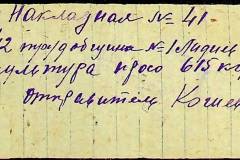 Накладная № 41.
2 трудобщина № 1
культура просо 615 кг
отправитель